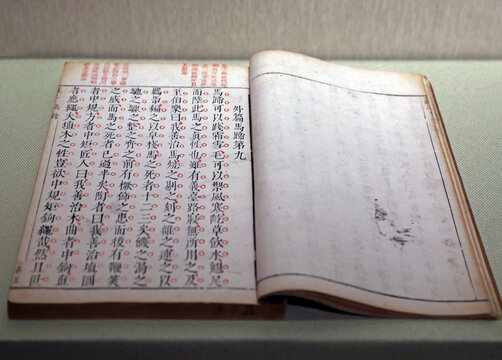 外篇馬蹄第九
馬蹄可以踐霜雪毛可以禦風寒齕草飲水翹足
而陸此馬之真性也雖有義臺路寢無所用之及
至伯樂曰我善治馬燒之剔之刻之雒之連之以
羈馽編之以皁棧馬之死者十二三矣飢之渴之
馳之驟之整之齊之前有橛飾之患而後有鞭筴
之威而馬之死者已過半矣陶者曰我善治埴圓
者中規方者中矩匠人曰我善治木曲者中鉤直
者應繩夫埴木之性豈欲中規矩鉤繩哉然且世